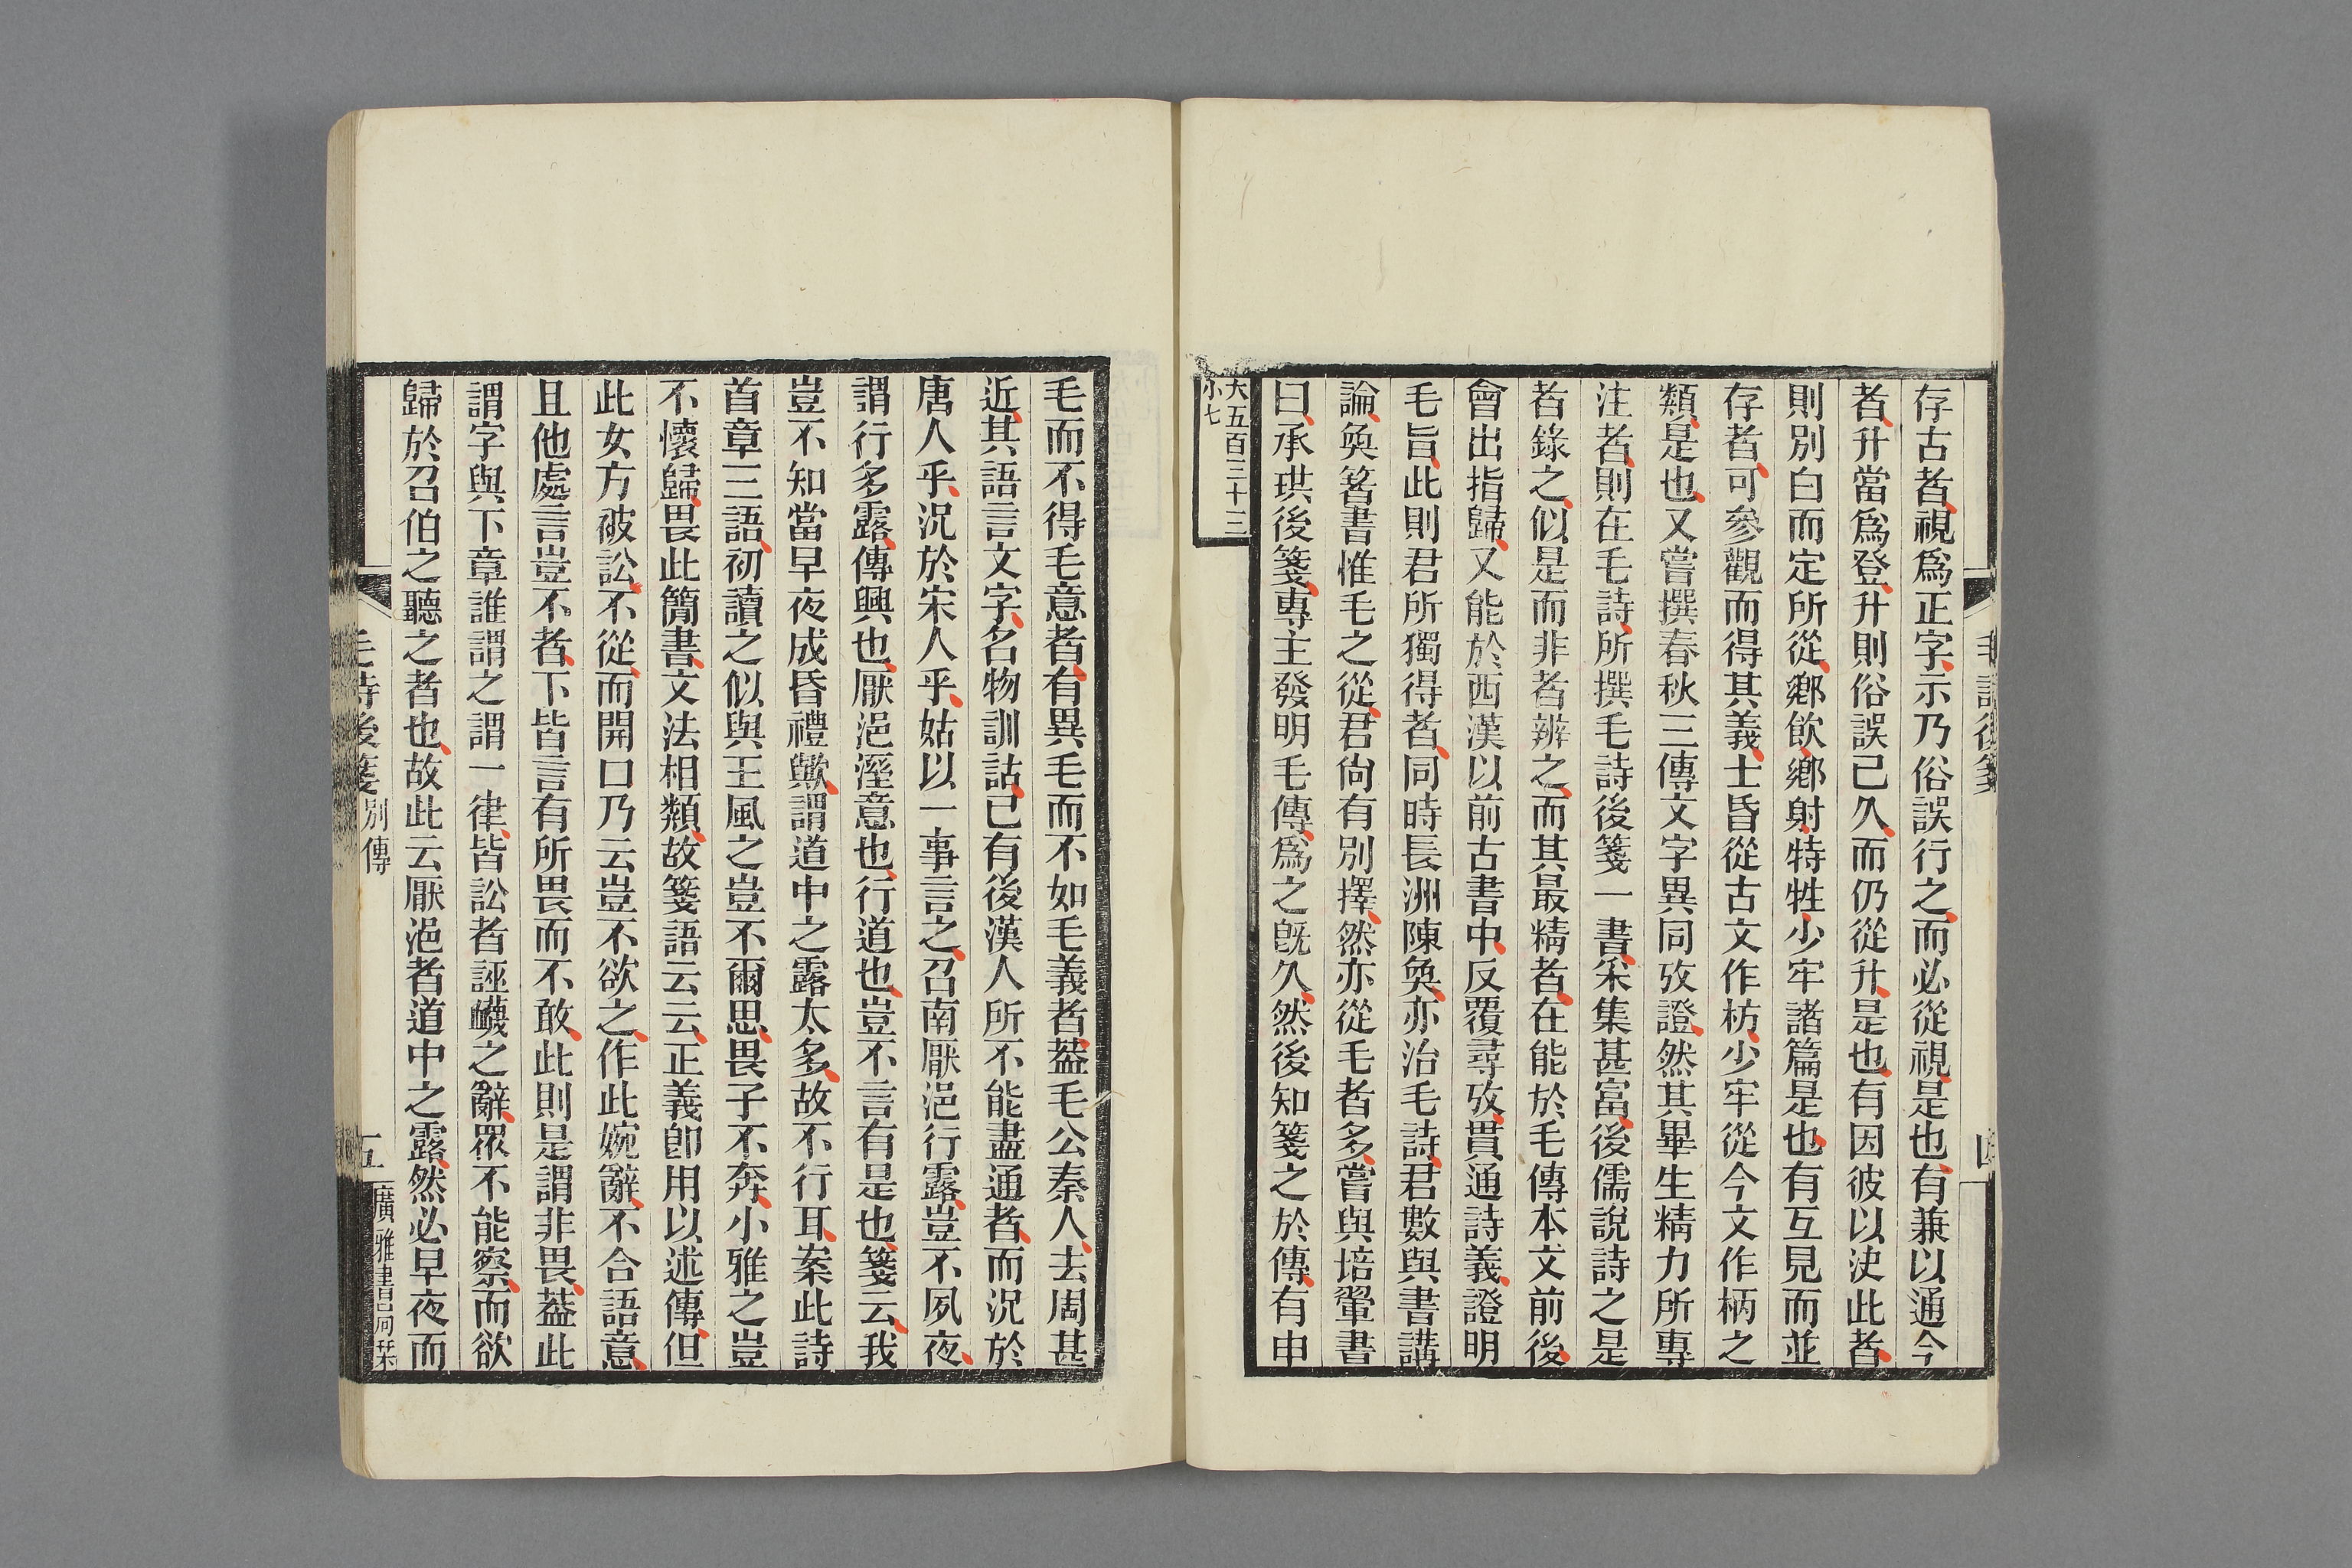 存古者視爲正字示乃俗誤行之而必從視是也有兼以通今
者升當爲登升則俗誤已久而仍從升是也有因彼以決此者
則別白而定所從鄕飲鄕射特牲少牢諸篇是也有互見而並
存者可參觀而得其義士昏從古文作枋少牢從今文作柄之
類是也又嘗撰春秋三傳文字異同攷證然其畢生精力所專
注者則在毛詩所撰毛詩後箋一書采集甚富後儒說詩之是
者錄之似是而非者辨之而其最精者在能於毛傳本文前後
會出指歸又能於西漢以前古書中反覆尋攷貫通詩義證明
毛旨此則君所獨得者同時長洲陳奐亦治毛詩君數與書講
論奐箸書惟毛之從君尙有別擇然亦從毛者多嘗與培翬書
曰承珙後箋專主發明毛傳爲之旣久然後知箋之於傳有申
大五百三十三
小七
毛詩後箋
四
毛而不得毛意者有異毛而不如毛義者葢毛公秦人去周甚
近其語言文字名物訓詁已有後漢人所不能盡通者而況於
唐人乎況於宋人乎姑以一事言之召南厭浥行露豈不夙夜
謂行多露傳興也厭浥溼意也行道也豈不言有是也箋云我
豈不知當早夜成昏禮歟謂道中之露太多故不行耳案此詩
首章三語初讀之似與王風之豈不爾思畏子不奔小雅之豈
不懷歸畏此簡書文法相類故箋語云云正義卽用以述傳但
此女方被訟不從而開口乃云豈不欲之作此婉辭不合語意
且他處言豈不者下皆言有所畏而不敢此則是謂非畏葢此
謂字與下章誰謂之謂一律皆訟者誣衊之辭眾不能察而欲
歸於召伯之聽之者也故此云厭浥者道中之露然必早夜而
毛詩後箋 別傳
五
廣雅書局栞